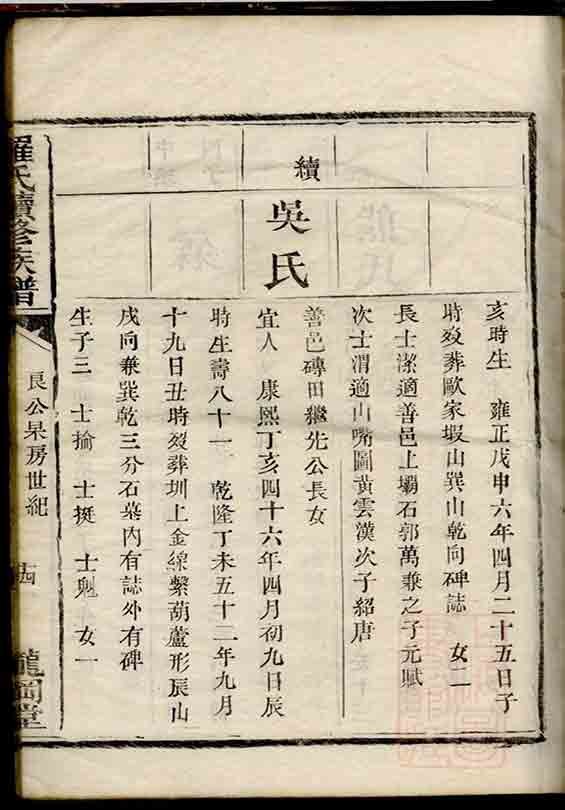 亥時生　雍正戊申六年四月二十五日子
時歿葬歐家塅山巽山乾向碑誌　女二
長士潔適善邑上壩石郭萬兼之子元賦
次士渭適山嘴圖黃雲漢次子紹唐
續
吳氏
善邑磚田繼先公長女
宜人　康熙丁亥四十六年四月初九日辰
時生壽八十一　乾隆丁未五十二年九月
十九日丑時歿葬圳上金線繫葫蘆形辰山
戌向兼巽乾三分石墓內有誌外有碑
生子三　士掄　士挺　士魁　女一
羅氏續修族譜
良公杲房世紀
龍岡堂